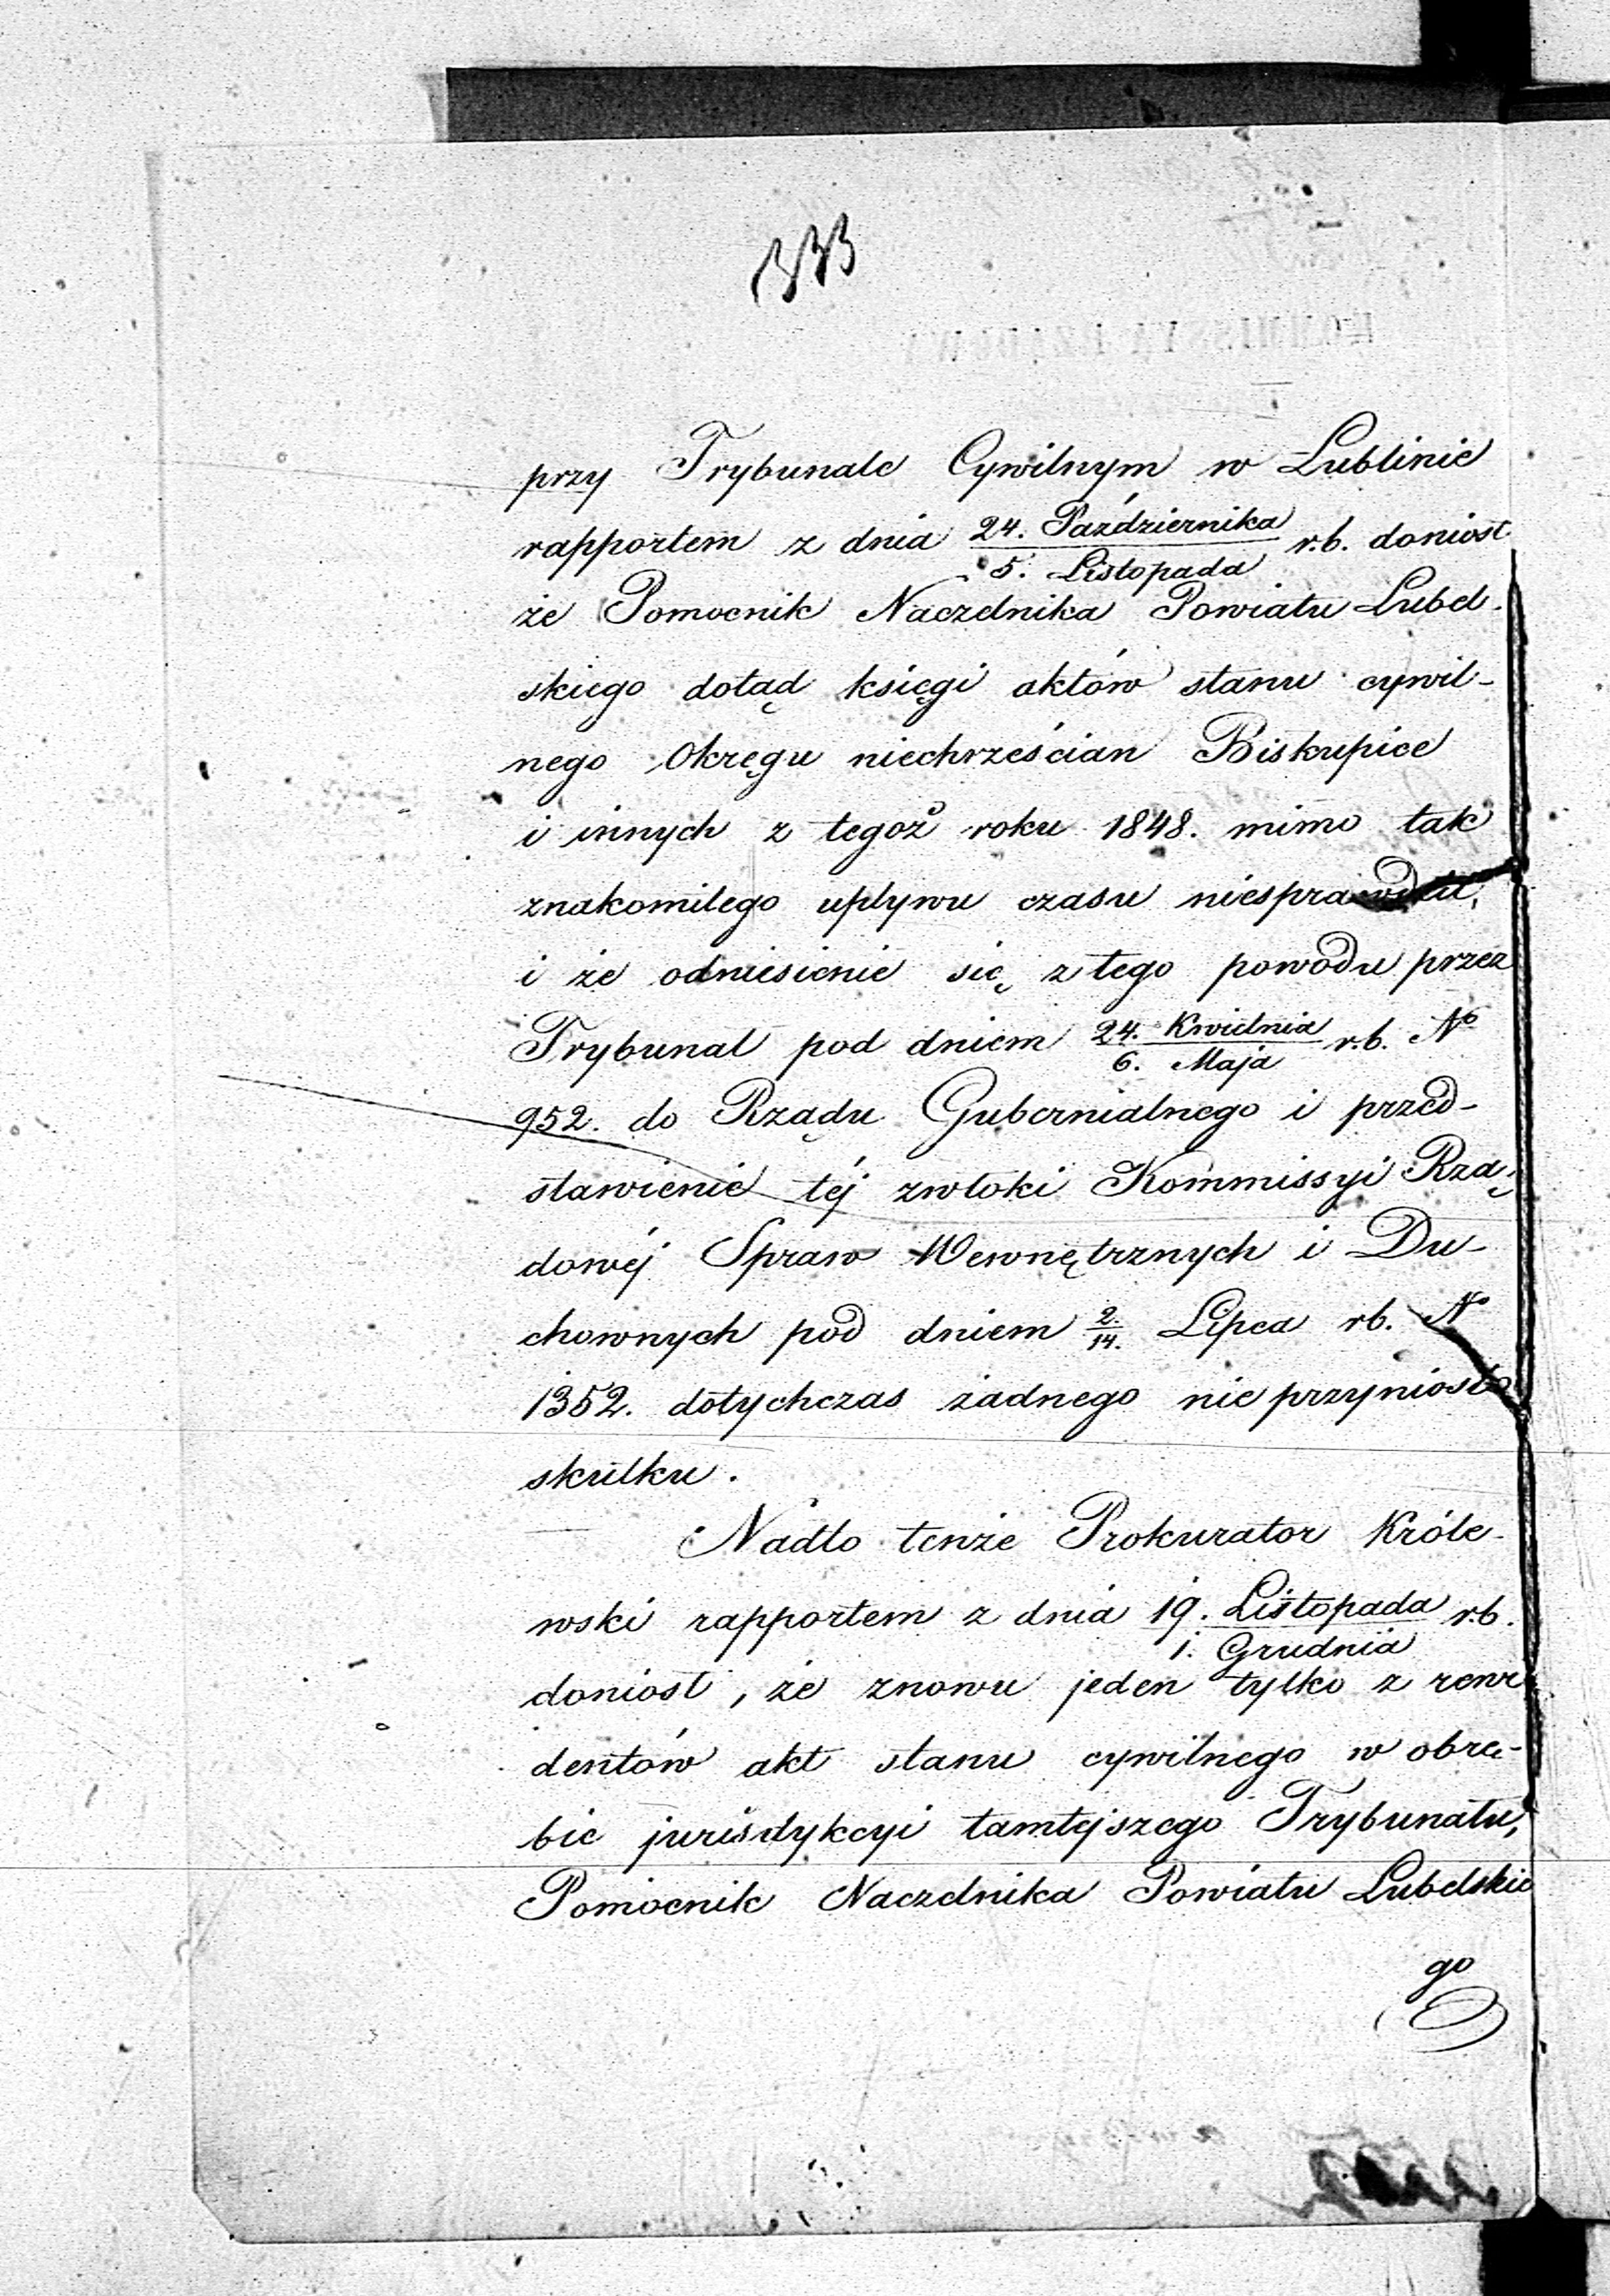 333
przy Trybunale Cywilnym w Lublinie
rapportem z dnia 24. Października / 5. Listopada r.b. doniosł
że Pomocnik Naczelnika Powiatu Lubel-
skiego dotąd księgi aktów stanu cywil-
nego Okręgu niechrześcian Biskupice
i innych z tegoż roku 1848. mimo tak
znakomitego upływu czasu niesprawdził,
i że odniesienie się z tego powodu przez
Trybunał pod dniem 24. Kwietnia / 6. Maja r.b. No
952. do Rządu Gubernialnego i przed-
stawienie téj zwłoki Kommissyi Rzą-
dowéj Spraw Wewnętrznych i Du-
chownych pod dniem 2./14. Lipca rb. No
1352. dotychczas żadnego nie przyniosło
skutku.
Nadto tenże Prokurator Króle-
wski rapportem z dnia 19. Listopada / 1. Grudnia r.b.
doniosł, że znowu jeden tylko z rewi
dentów akt stanu cywilnego w obrę-
bie jurisdykcyi tamtejszego Trybunału,
Pomocnik Naczelnika Powiatu Lubelskie
go